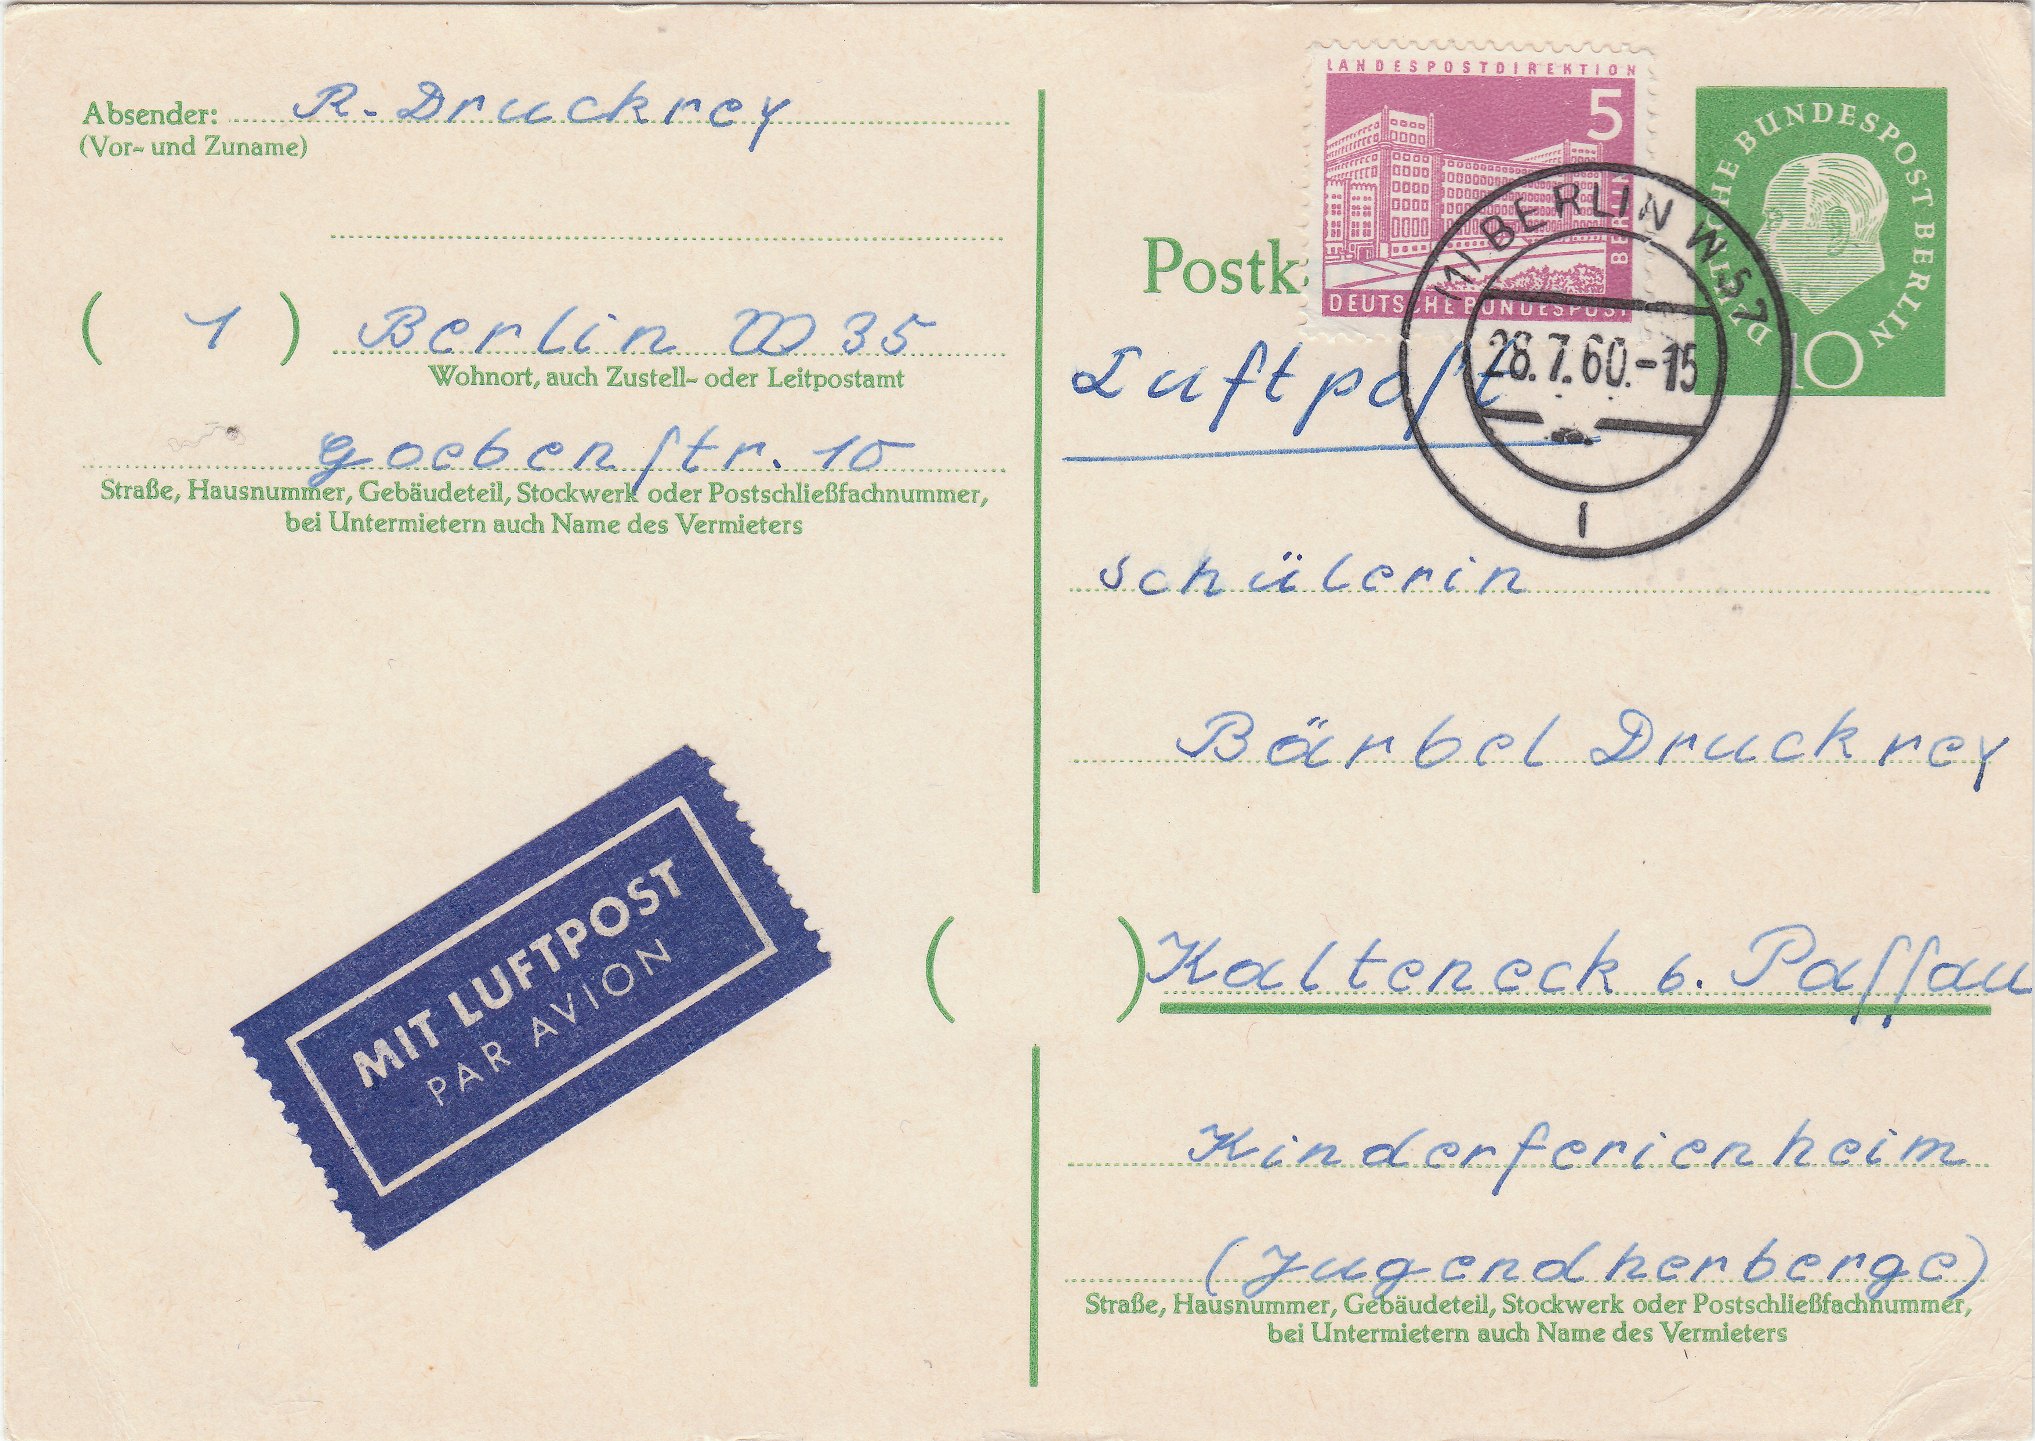 Absender: R. Druckrey
(Vor- und Zuname)
( 1 ) Berlin W 35
Wohnort, auch Zustell- oder Leitpostamt
Goebenstr. 10
Straße, Hausnummer, Gebäudeteil, Stockwerk oder Postschließfachnummer,
bei Untermietern auch Name des Vermieters
MIT LUFTPOST
PAR AVION
LANDESPOSTDIREKTION
5
BERLIN
DEUTSCHE BUNDESPOST
DEUTSCHE BUNDESPOST BERLIN
10
Postk
BERLIN W 57
28.7.60.-15
Luftpost
Schülerin
Bärbel Druckrey
( ) Kalteneck b. Passau
Kinderferienheim
(Jugendherberge)
Straße, Hausnummer, Gebäudeteil, Stockwerk oder Postschließfachnummer,
bei Untermietern auch Name des Vermieters